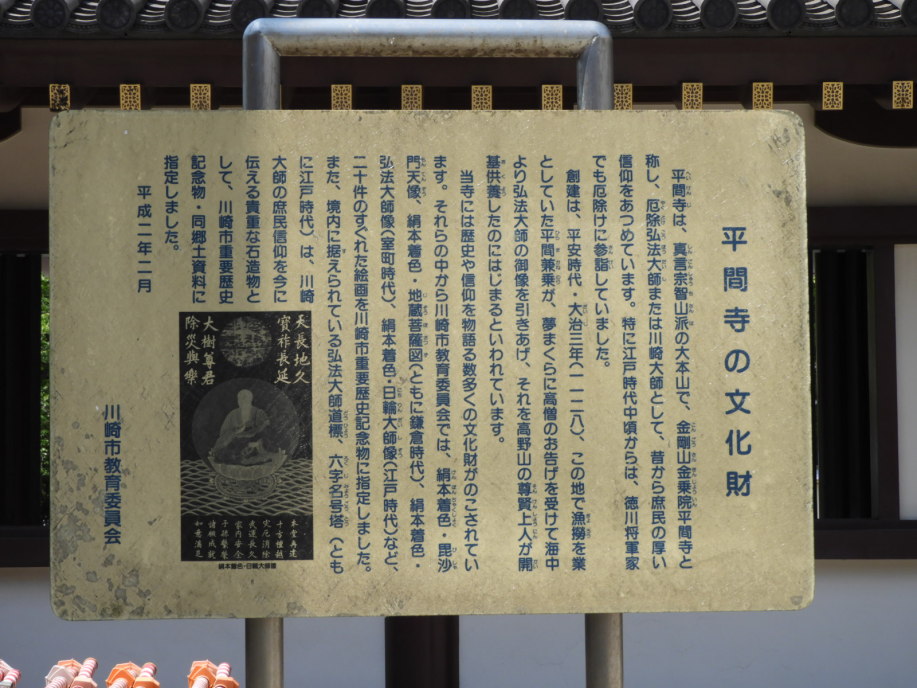 平間寺の文化財
平間寺は、真言宗智山派の大本山で、金剛山金乗院平間寺と
称し、厄除弘法大師または川崎大師として、昔から庶民の厚い
信仰をあつめています。特に江戸時代中頃からは、徳川将軍家
でも厄除けに参詣していました。
創建は、平安時代・大治三年(一一二八)、この地で漁撈を業
としていた平間兼乗が、夢まくらに高僧のお告げを受けて海中
より弘法大師の御像を引きあげ、それを高野山の尊賢上人が開
基供養したのにはじまるといわれています。
当寺には歴史や信仰を物語る数多くの文化財がのこされてい
ます。それらの中から川崎市教育委員会では、絹本着色・毘沙
門天像、絹本着色・地蔵菩薩図(ともに鎌倉時代)、絹本着色・
弘法大師像(室町時代)、絹本着色・日輪大師像(江戸時代)など、
二十件のすぐれた絵画を川崎市重要歴史記念物に指定しました。
また、境内に据えられている弘法大師道標、六字名号塔(とも
に江戸時代)は、川崎
大師の庶民信仰を今に
伝える貴重な石造物と
して、川崎市重要歴史
記念物・同郷土資料に
指定しました。
平成二年二月
天長地久
寳祚長延
大樹算君
除災與樂
本堂再建
十方檀越
災厄消除
武運長久
家内安全
子孫繁栄
諸願成就
如意滿足
絹本着色・日輪大師像
川崎市教育委員会